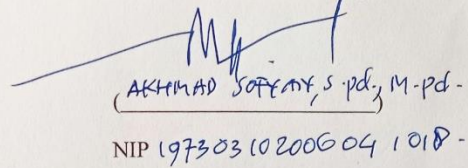 AKHMAD SOFYAN, S.pd., M.pd.
NIP 19730310200604 1018